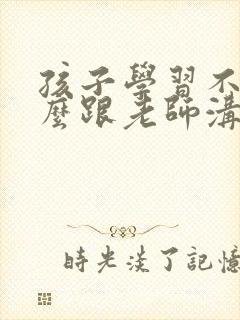 孩子學習不
麼跟老師溝
時光淡了記憶